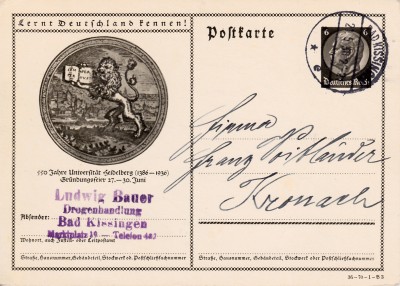 Lernt Deutschland kennen!
Postkarte
BAD KISSING
6 6
Deutsches Reich
550 Jahre Universität Heidelberg (1386-1936)
Gründungsfeier 27.-30. Juni
Ludwig Bauer
Drogenhandlung
Bad Kissingen
Marktplatz 10 - Telefon
Absender:
Wohnort, auch Zustell- oder Leitpostamt
Straße, Hausnummer, Gebäudeteil, Stockwerk od. Postschließfachnummer
Firma
Franz
Kronach
Straße, Hausnummer, Gebäudeteil, Stockwerk oder Postschließfachnummer